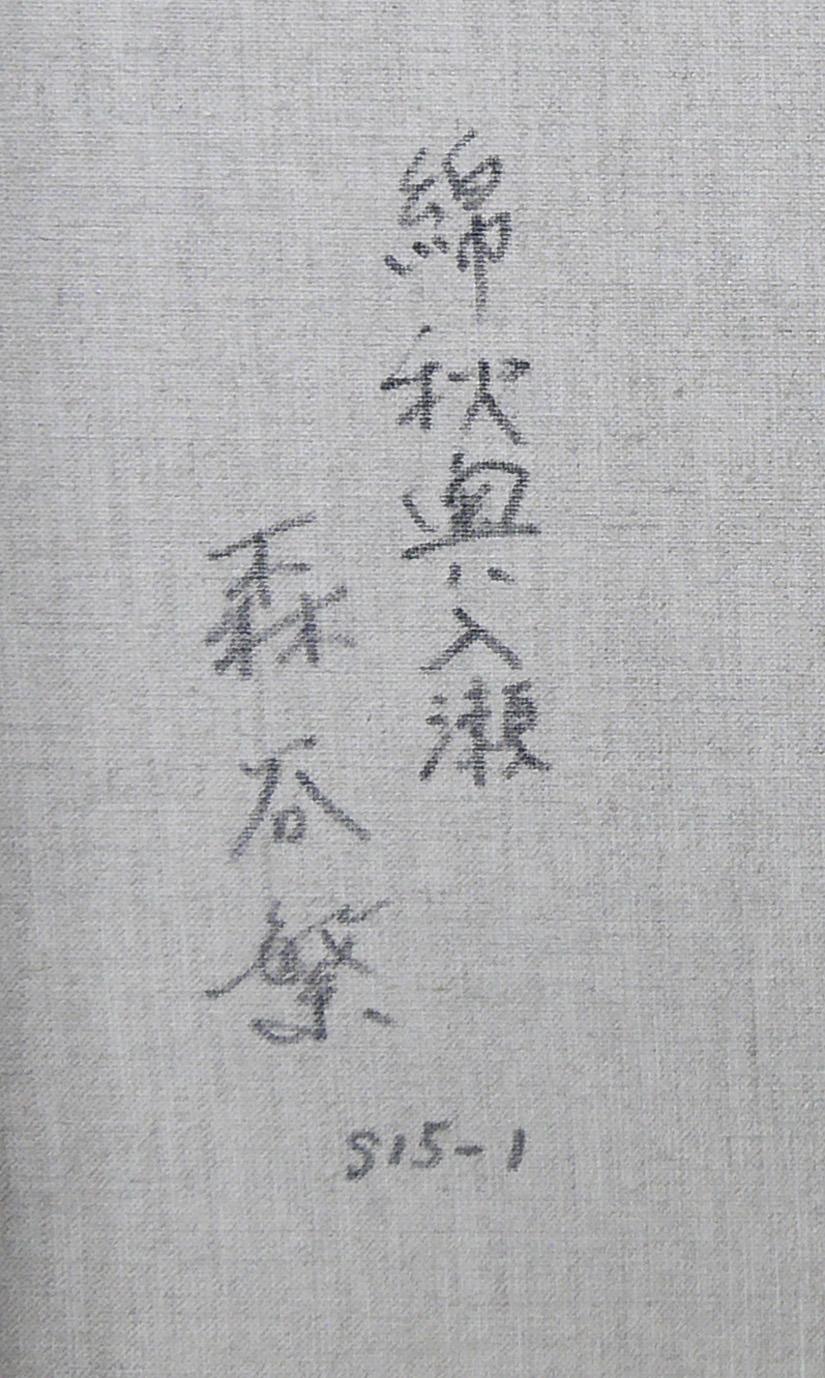 綿秋奥入瀬
森谷繁
S15-1